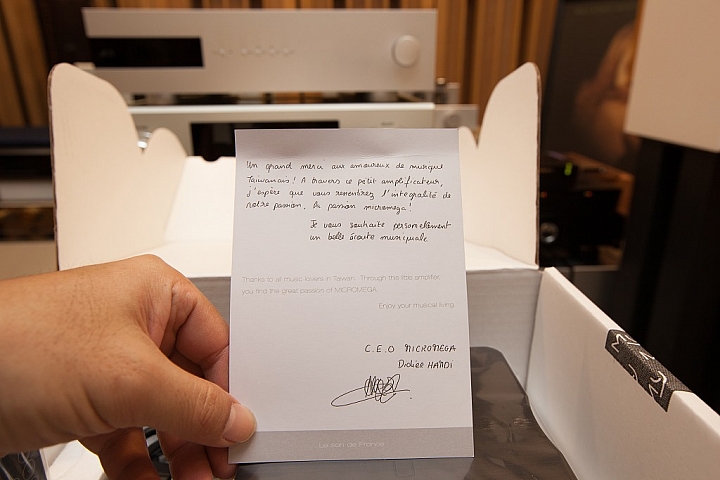 Un grand merci aux amoureux de musique
Taiwanais! A travers ce petit amplificateur,
j'espère que vous rencontrez l'integralité de
notre passion, la passion micromega!
Je vous souhaite personellement
un belle écoute musicale
Thanks to all music lovers in Taiwan. Through the little amplifier,
you find the great passion of MICROMEGA.
Enjoy your musical living.
C.E.O MICROMEGA
Didier HAMDI
Le son de France